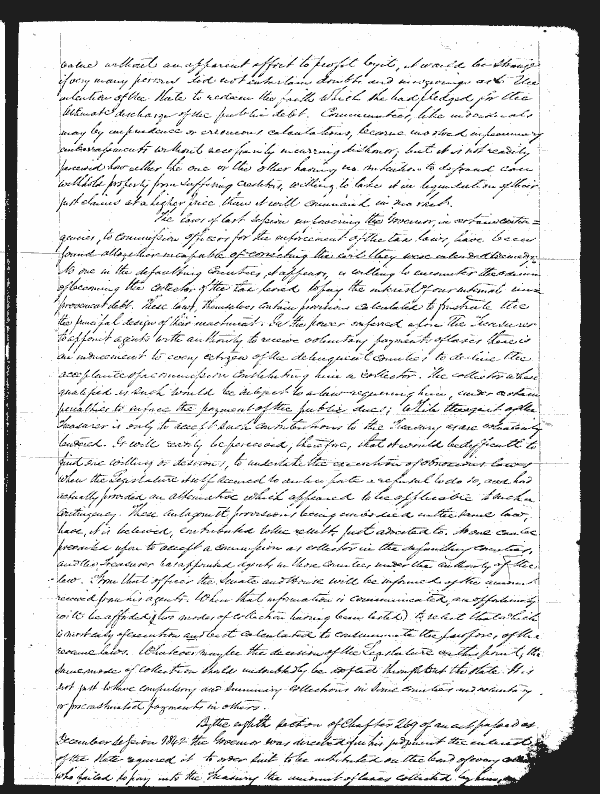 value without an apparent effort to profit by it, it would be strange
if very many persons did not entertain doubts and misgivings as to the
intention of the State to redeem the faith which she had pledged, for the
ultimate discharge of the public debt. Communities, like individuals
may by imprudence or erroneous calculations, become involved in pecuniary
embarrassments without necessarily incurring dishonor, but it is not easily
perceived how either the one or the other having no intention to defraud can
withhold property from suffering creditors, willing to take it in liquidation of their
just claims at a higher price than it will command in market.
The laws of last session empowering the Governor, in certain contin=
gencies, to commission officers for the enforcement of the tax laws, have been
found altogether incapable of correcting the evil they were intended to remedy.
No one in the defaulting Counties, it appears, is willing to encounter the odium
of becoming the collector of the tax levied to pay the interest of our internal im
provement debt. These laws, themselves contain provisions calculated to frustrate the
the principal design of their enactment. In the power conferred upon the Treasurer
to appoint agents with authority to receive voluntary payments of taxes there is
an inducement to every citizen of the delinquent counties to decline the
acceptance of a commission constituting him a collector. The collector when
qualified as such would be subject to a law requiring him, under certain
penalties to enforce the payment of the public dues; while the agent of the
Treasurer is only to accept such contributions to the Treasury as are voluntarily
tendered. It will easily be perceived, therefore, that it would be difficult to
find one willing or desirous, to undertake the execution of obnoxious laws
when the Legislature itself seemed to anticipate a refusal to do so, and had
actually provided an alternative which appeared to be applicable to such a
contingency. These antagonist provisions being embodied in the same law,
have, it is believed, contributed to the result just adverted to. No one can be
prevailed upon to accept a commission as collector in the defaulting counties,
and the Treasurer has appointed agents in those Counties under the authority of the
law. From that officer the Senate and House will be informed of the amount
received from his agents. When that information is communicated, an opportunity
will be afforded (two modes of collection having been tested) to select that which
is most easy of execution and best calculated to consummate the purposes of the
revenue laws. Whatever may be the decision of the Legislature on this point, the
same mode of collection should undoubtedly be adopted throughout the State. It is
not just to have compulsory and summary collections in some counties and voluntary
or procrastinated payments in others.
By the eighth section of Chapter 269 of an act passed at
December session 1842 the Governor was directed if in his judgment the interest
of the State required it to order suit to be instituted on the bond of every collector
who failed to pay into the Treasury the amount of taxes collected by him,